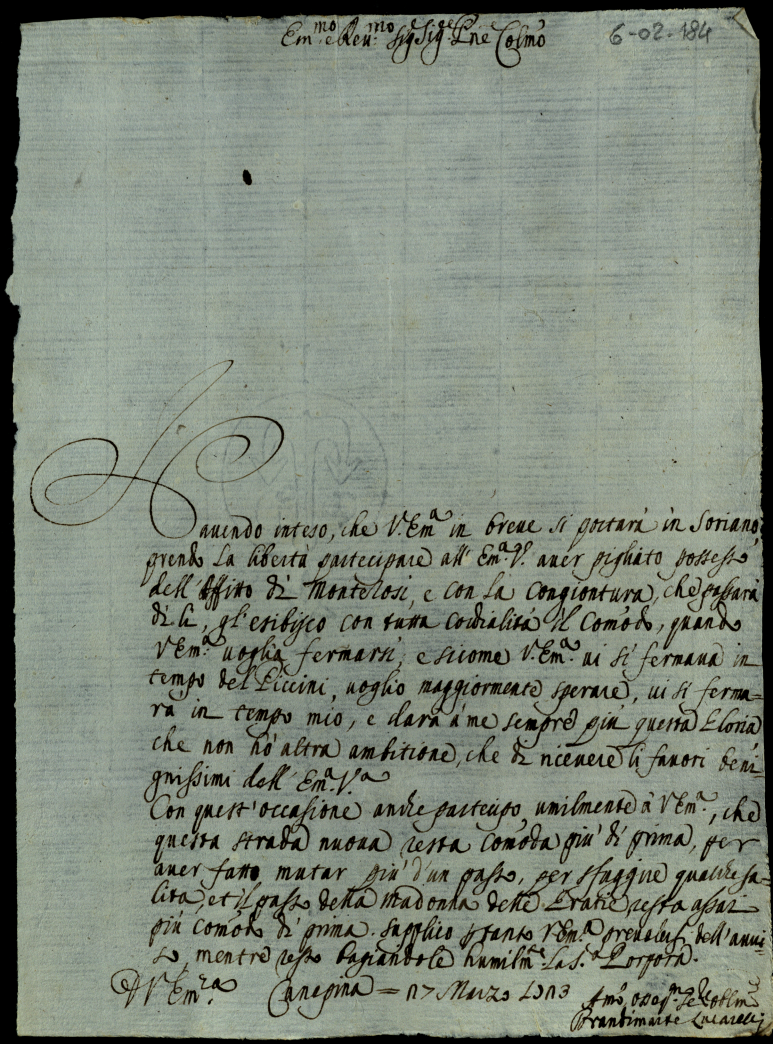 Em.mo e Reu.mo Sig.e Sig.e Pñe Colmo
6-02.184
Hauendo inteso, che V. Em.a in breue si portarà in Soriano,
prendo la libertà partecipare all' Em.a V. auer pigliato possesso
dell' Affitto di Monterosi, e con la congiontura, che passarà
di lì, gl' esibisco con tutta cordialità il comodo, quando
V Em.a voglia fermarsi, e sicome V. Em.a ui si fermaua in
tempo del Piccini, uoglio maggiormente sperare, ui si ferma=
rà in tempo mio, e darà à me sempre più questa Gloria
che non hò altra ambitione, che di riceuere li fauori beni
gnissimi dell' Em.a V.a
Con quest' occasione anche partecipo umilmente à V Em.a, che
questa strada nuoua resta comoda più di prima, per
auer fatto mutar più d'un passo, per sfuggire qualche sa=
lita, et il passo della Madonna delle Gratie resta assai
più comodo di prima. Supplico V Em.a preualersi dell' auui
so, mentre resto baciandole humilm.e la S. Porpora.
D V Em.za Canepina = 17 Marzo
Brandimarte Lucarelli